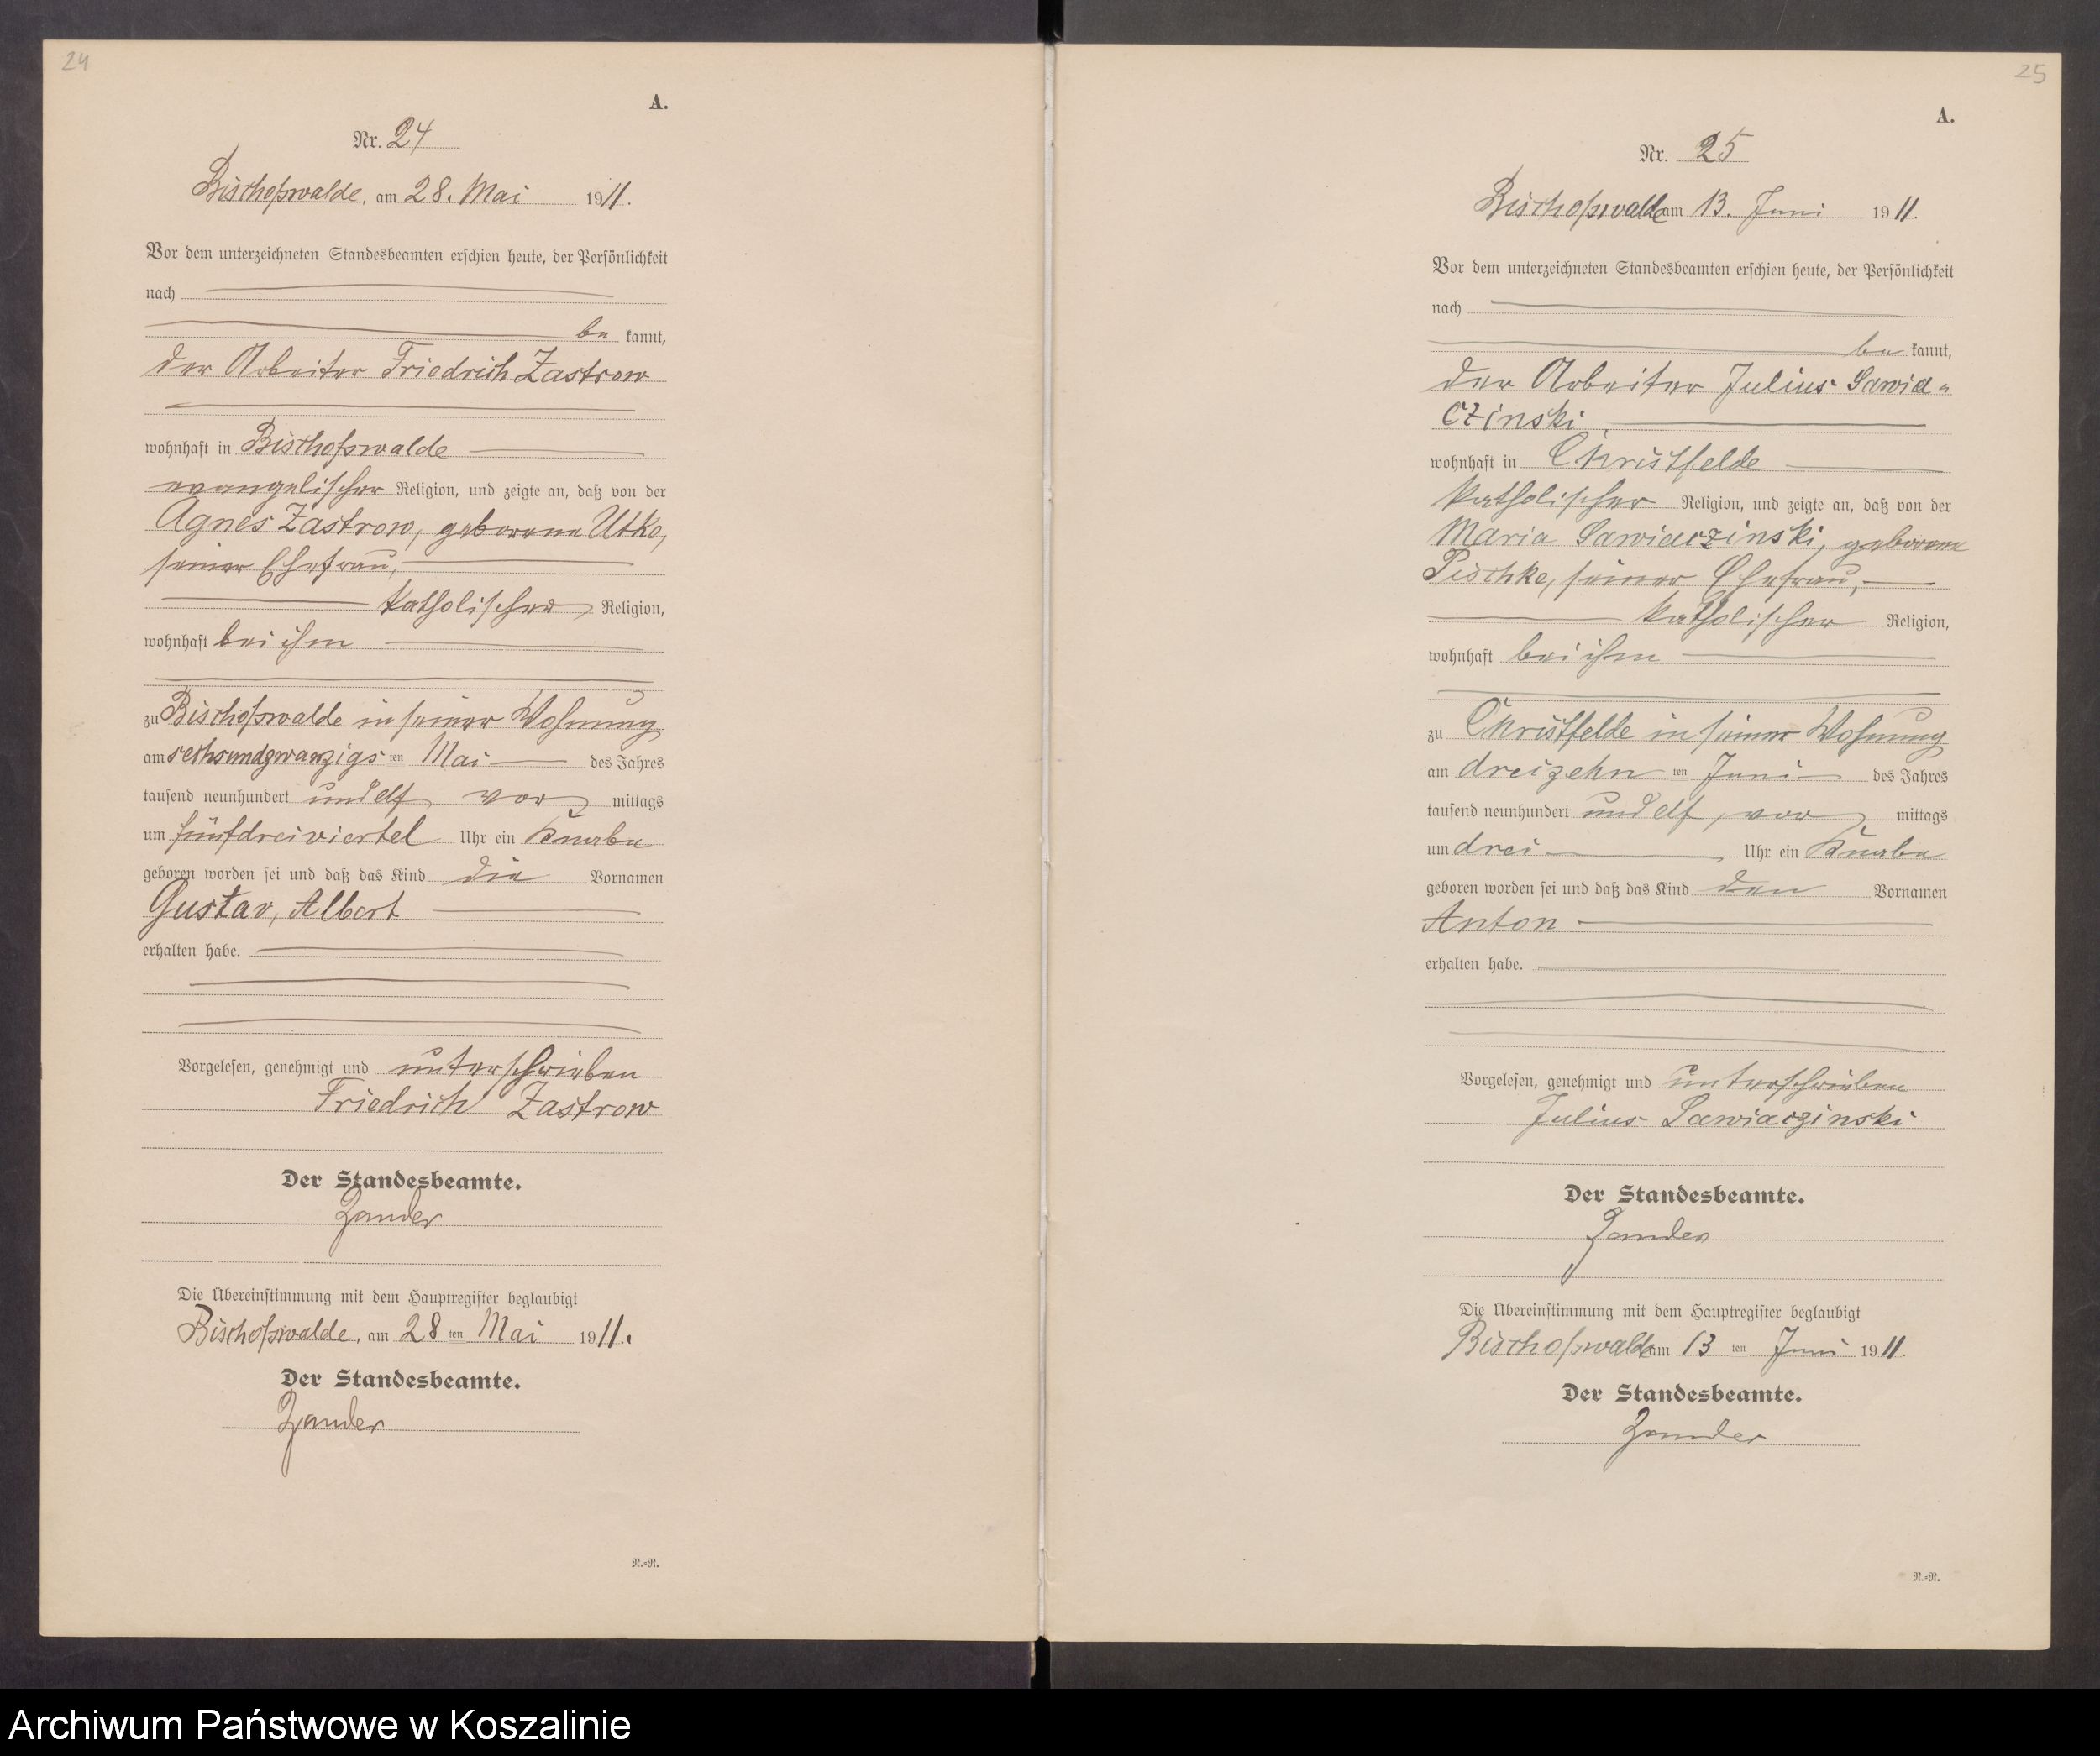 24
A.
Nr. 24
Bischofswalde, am 28. Mai 1911.
Vor dem unterzeichneten Standesbeamten erschien heute, der Persönlichkeit
nach
be kannt,
der Arbeiter Friedrich Zastrow
wohnhaft in Bischofswalde
evangelischer Religion, und zeigte an, daß von der
Agnes Zastrow, geborene Utke,
seiner Ehefrau,
katholischer Religion,
wohnhaft bei ihm
zu Bischofswalde in seiner Wohnung
am sechsundzwanzigsten Mai des Jahres
tausend neunhundert und elf vor mittags
um fünfdreiviertel Uhr ein Knabe
geboren worden sei und daß das Kind die Vornamen
Gustav, Albert
erhalten habe.
Vorgelesen, genehmigt und unterschrieben
Friedrich Zastrow
Der Standesbeamte.
Zander
Die Übereinstimmung mit dem Hauptregister beglaubigt
Bischofswalde, am 28 ten Mai 1911.
Der Standesbeamte.
Zander
R.-R.
25
A.
Nr. 25
Bischofswalde am 13. Juni 1911.
Vor dem unterzeichneten Standesbeamten erschien heute, der Persönlichkeit
nach
be kannt,
der Arbeiter Julius Sawia-
czinski,
wohnhaft in Christfelde
katholischer Religion, und zeigte an, daß von der
Maria Sawiaczinski, geborene
Pischke, seiner Ehefrau,
katholischer Religion,
wohnhaft bei ihm
zu Christfelde in seiner Wohnung
am dreizehn ten Juni des Jahres
tausend neunhundert und elf, vor mittags
um drei Uhr ein Knabe
geboren worden sei und daß das Kind den Vornamen
Anton
erhalten habe.
Vorgelesen, genehmigt und unterschrieben
Julius Sawiaczinski
Der Standesbeamte.
Zander
Die Übereinstimmung mit dem Hauptregister beglaubigt
Bischofswalde am 13 ten Juni 1911.
Der Standesbeamte.
Zander
R.-R.
Archiwum Państwowe w Koszalinie